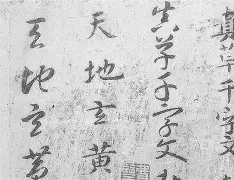 真草千字文
真草千字文
天地玄黃
天地玄黃